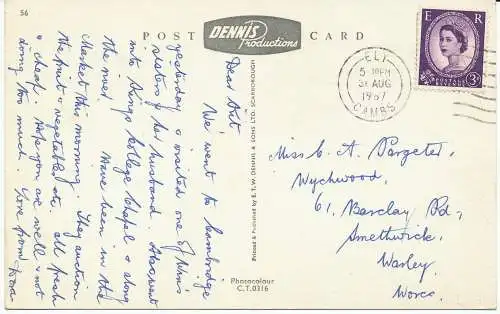 56
POST CARD
DENNIS
Productions
E R
3D
ELY
5 PM
31 AUG
1967
CAMBS
Dear
We went to Cambridge
yesterday & visited one of
sisters & her husband. Also went
into Kings College Chapel & along
the river. Have been in the
market this morning. They auction
the fruit & vegetables etc. all fresh
& cheap. Hope you are well & not
doing too much. Love from
Printed & Published by E. T. W. DENNIS & SONS LTD. SCARBOROUGH
Photocolour
C.T.0316
Miss C. A. Pargeter,
Wychwood,
61, Barclay Rd,
Smethwick,
Warley,
Worcs.